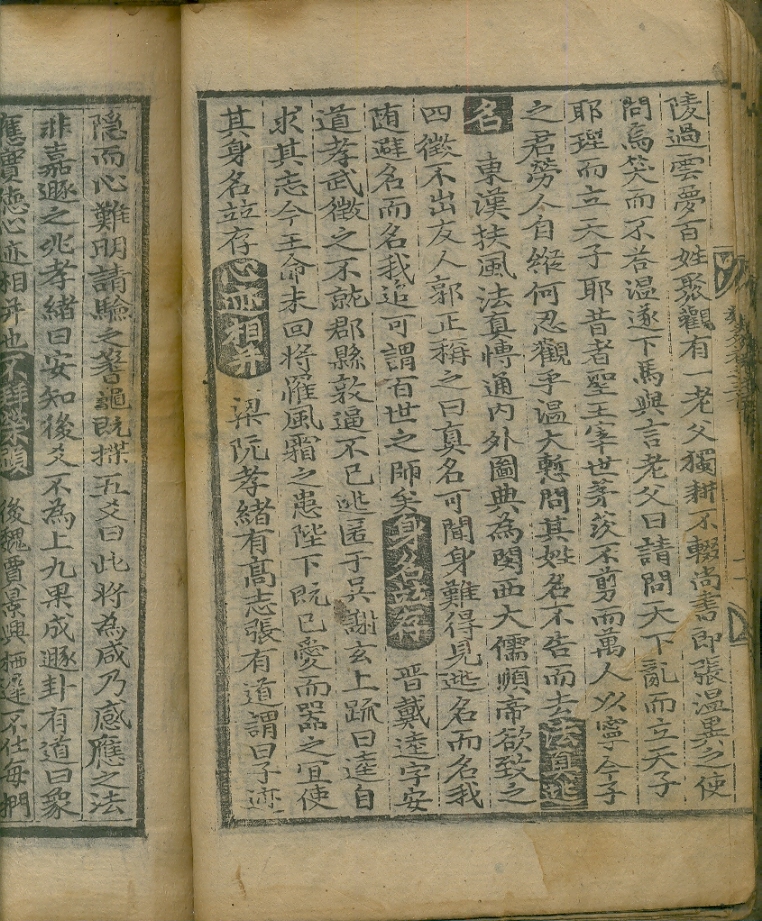 陵過雲夢百姓聚觀有一老父獨耕不輟尚書即張温異之使
問焉笑而不荅温遂下馬與言老父曰請問天下亂而立天子
耶理而立天子耶昔者聖王宰世茅茨不剪而萬人以寧今子
之君勞人自縱何忍觀乎温大慙問其姓名不告而去法真逃
名 東漢扶風法真博通内外圖典為関西大儒順帝欲致之
四徵不出友人郭正稱之曰真名可聞身難得見逃名而名我
随避名而名我追可謂百世之師矣身名並存 晋戴逵字安
道孝武徵之不就郡縣敦逼不已逃匿于吴謝玄上疏曰逵自
求其志今王命未回将罹風霜之患陛下既已愛而器之宜使
其身名並存心迹相并 梁阮孝緒有髙志張有道謂曰子迹
隠而心難明請驗之蓍龜既揲五爻曰此将為咸乃感應之法
非嘉遯之兆孝緒曰安知後爻不為上九果成遯卦有道曰象
應實德心迹相并也 後魏賈景興栖遲不仕每捫